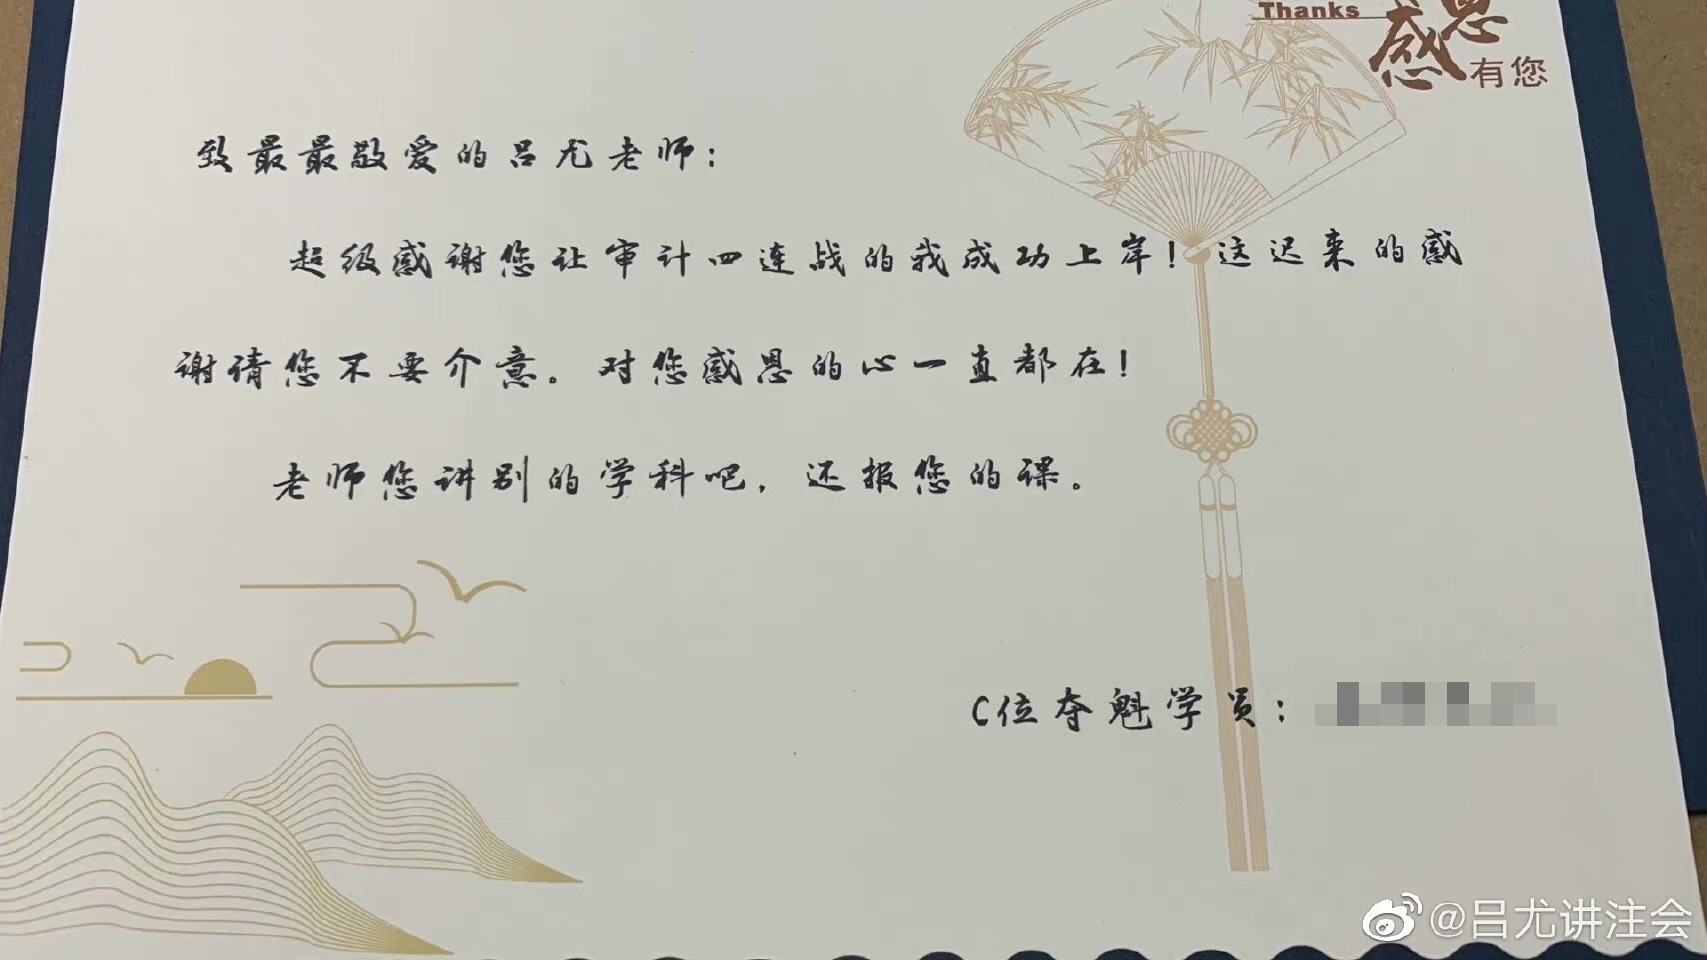 Thanks
感恩
有您
致最最敬爱的吕尤老师：
超级感谢您让审计四连战的我成功上岸！这迟来的感
谢请您不要介意。对您感恩的心一直都在！
老师您讲别的学科吧，还报您的课。
C位夺魁学员：
@吕尤讲注会